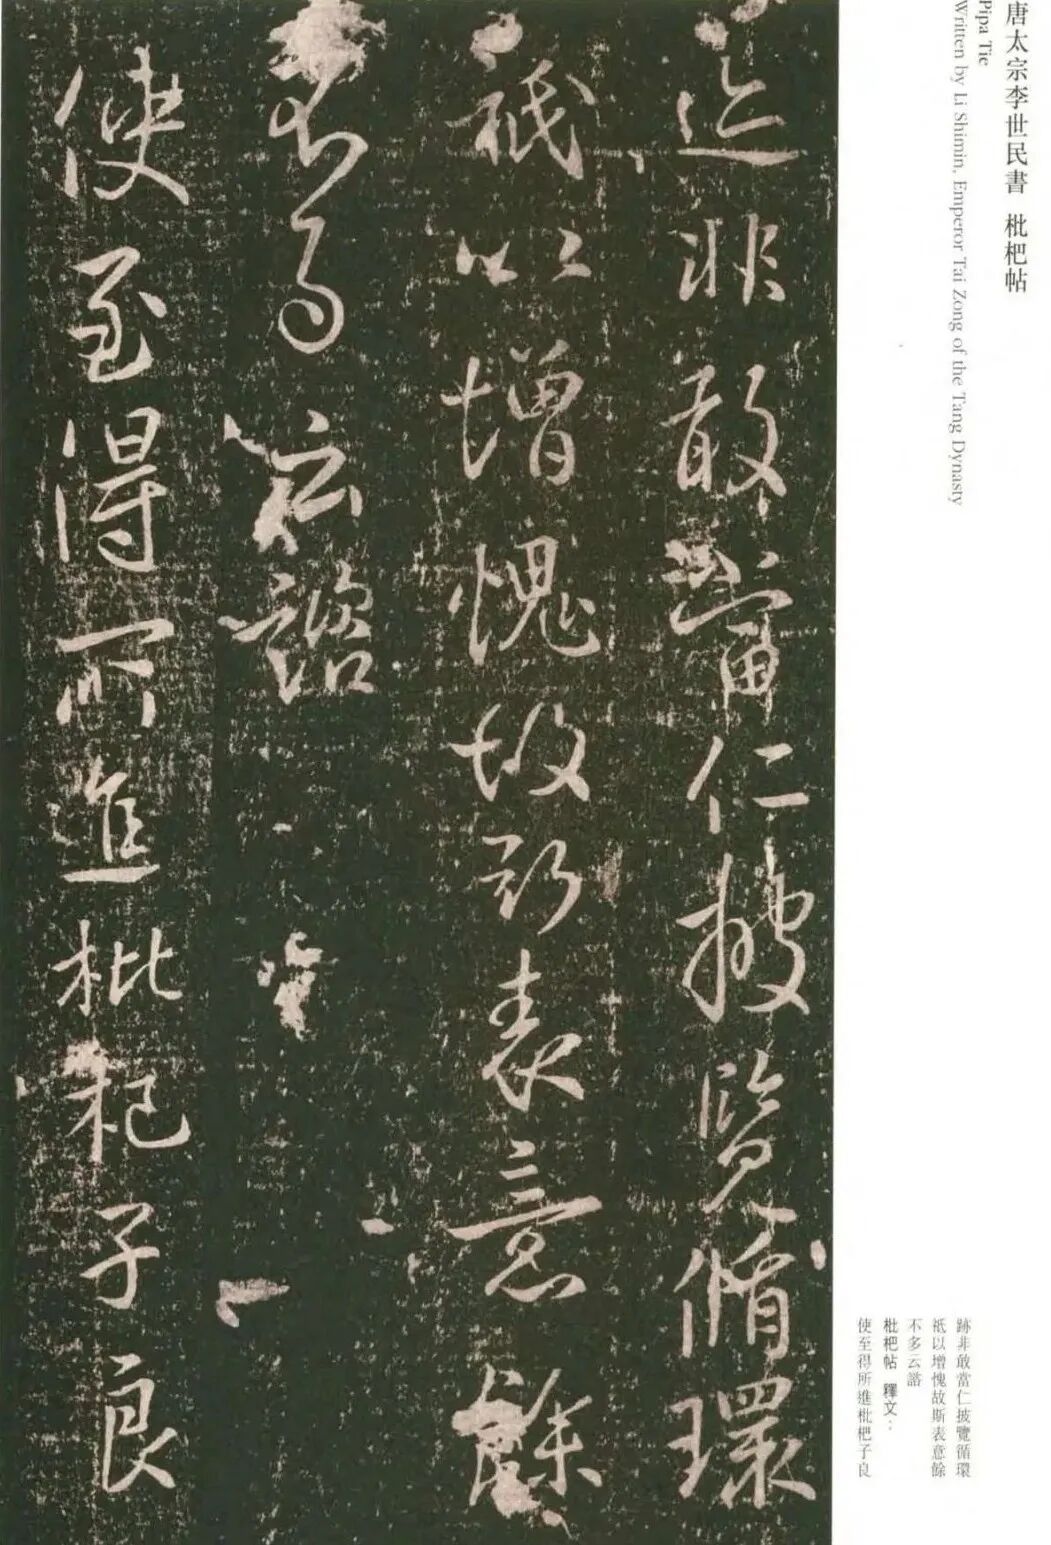 唐太宗李世民書 枇杷帖
Pipa Tie
Written by Li Shimin, Emperor Tai Zong of the Tang Dynasty
迹非敢當仁披覽循環
祇以增愧故斯表意餘
不多云諮
使至得所進枇杷子良
跡非敢當仁披覽循環
祇以增愧故斯表意餘
不多云諮
枇杷帖 釋文：
使至得所進枇杷子良